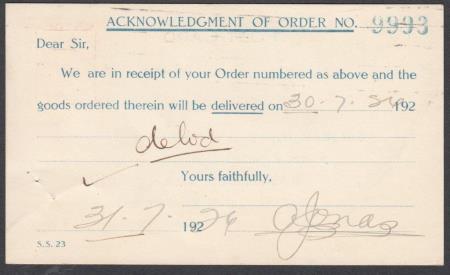 ACKNOWLEDGMENT OF ORDER NO. 9993
Dear Sir,
We are in receipt of your Order numbered as above and the
goods ordered therein will be delivered on 30-7.26 192
delvd
Yours faithfully,
31-7.26 192
S.S. 23